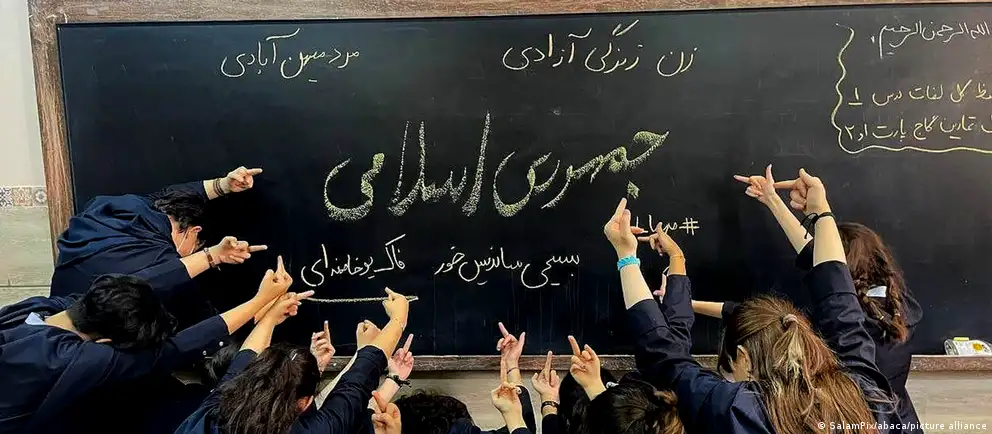 الله الرحمن الرحیم
کل لغات درس ۱
تمارین گاج پارت ۱ و ۲
زن زندگی آزادی
مرد میهن آبادی
جمهوری اسلامی
#مهسا
بسیجی ساندیس خور
فاک یو خامنه‌ای
© SalamPix/abaca/picture alliance